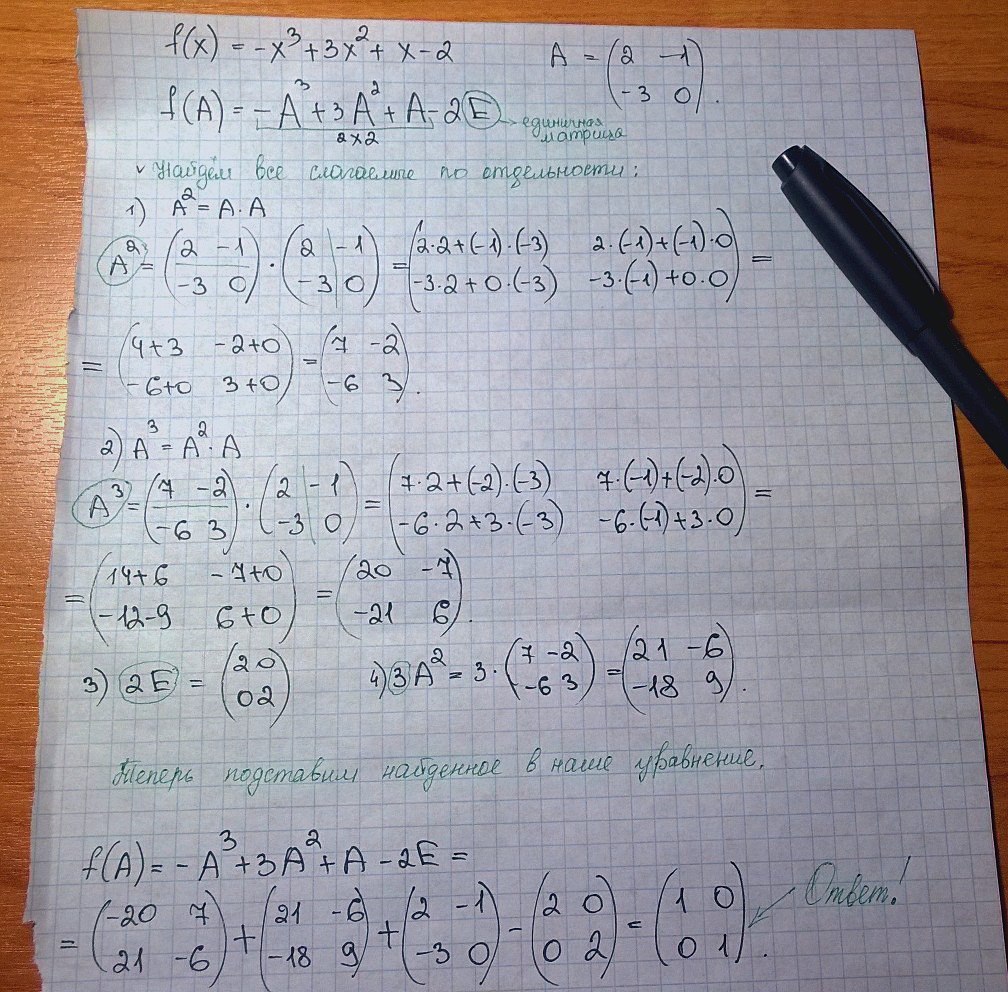 f(x) = -x³ + 3x² + x - 2   A = (2 -1
-3 0).
f(A) = -A³ + 3A² + A - 2E → единичная
матрица
2x2
Найдём все слагаемые по отдельности:
1) A² = A · A
A² = (2 -1   · (2 -1   = (2·2+(-1)·(-3)   2·(-1)+(-1)·0   =
-3 0)   -3 0)   -3·2+0·(-3)   -3·(-1)+0·0)
= (4+3 -2+0   = (7 -2
-6+0 3+0)   -6 3).
2) A³ = A² · A
A³ = (7 -2   · (2 -1   = (7·2+(-2)·(-3)   7·(-1)+(-2)·0   =
-6 3)   -3 0)   -6·2+3·(-3)   -6·(-1)+3·0)
= (14+6 -7+0   = (20 -7
-12-9 6+0)   -21 6).
3) 2E = (2 0   4) 3A² = 3 · (7 -2   = (21 -6
0 2)   -6 3)   -18 9).
Теперь подставим найденное в наше уравнение.
f(A) = -A³ + 3A² + A - 2E =
= (-20 7   + (21 -6   + (2 -1   - (2 0   = (1 0   Ответ!
21 -6)   -18 9)   -3 0)   0 2)   0 1).